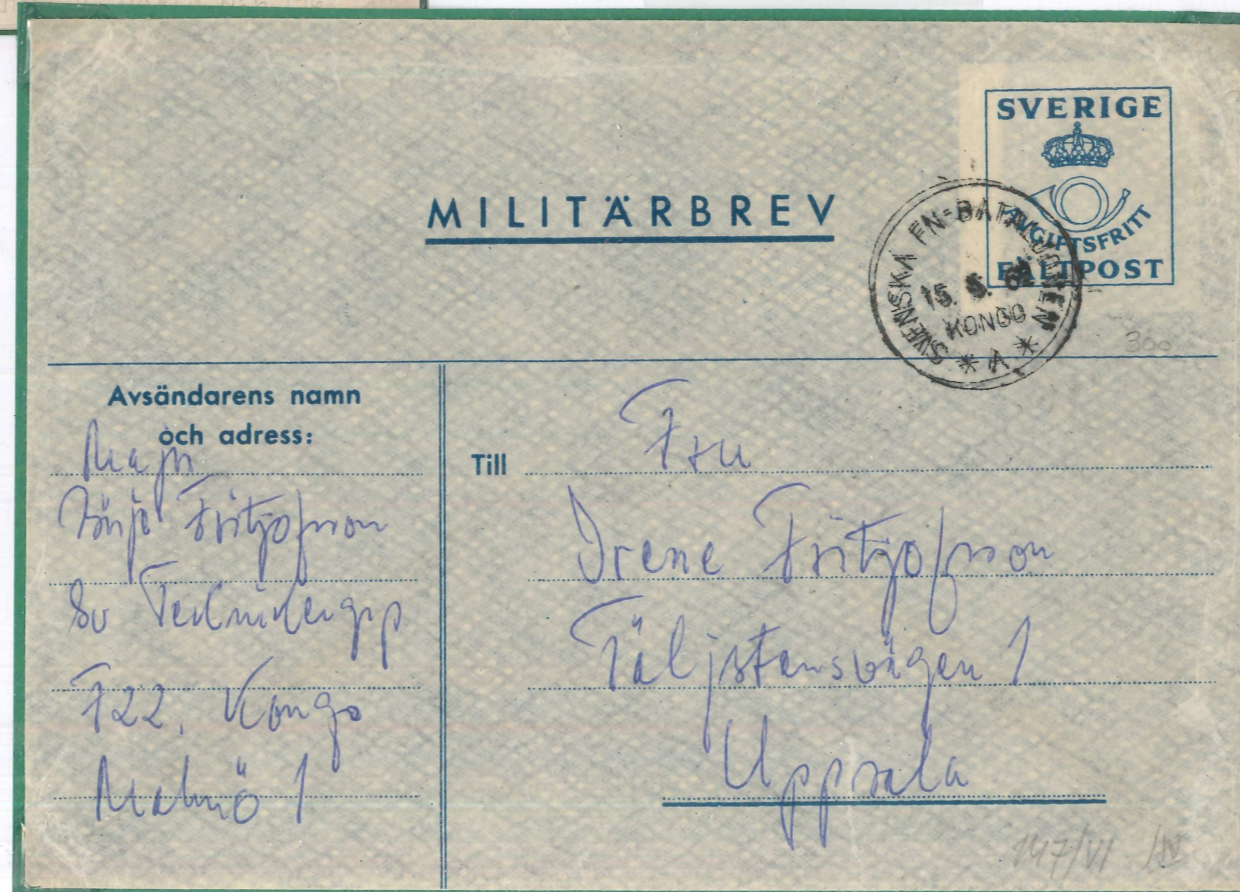 MILITÄRBREV
SVERIGE
AVGIFTSFRITT
FÄLTPOST
SVENSKA FN-BATALJONEN
15.
KONGO
300
Avsändarens namn
och adress:
Majn
Börje Fritjofsson
Sv Teknikergrp
F22, Kongo
Malmö 1
Till Fru
Irene Fritjofsson
Täljstensvägen 1
Uppsala
147/VI